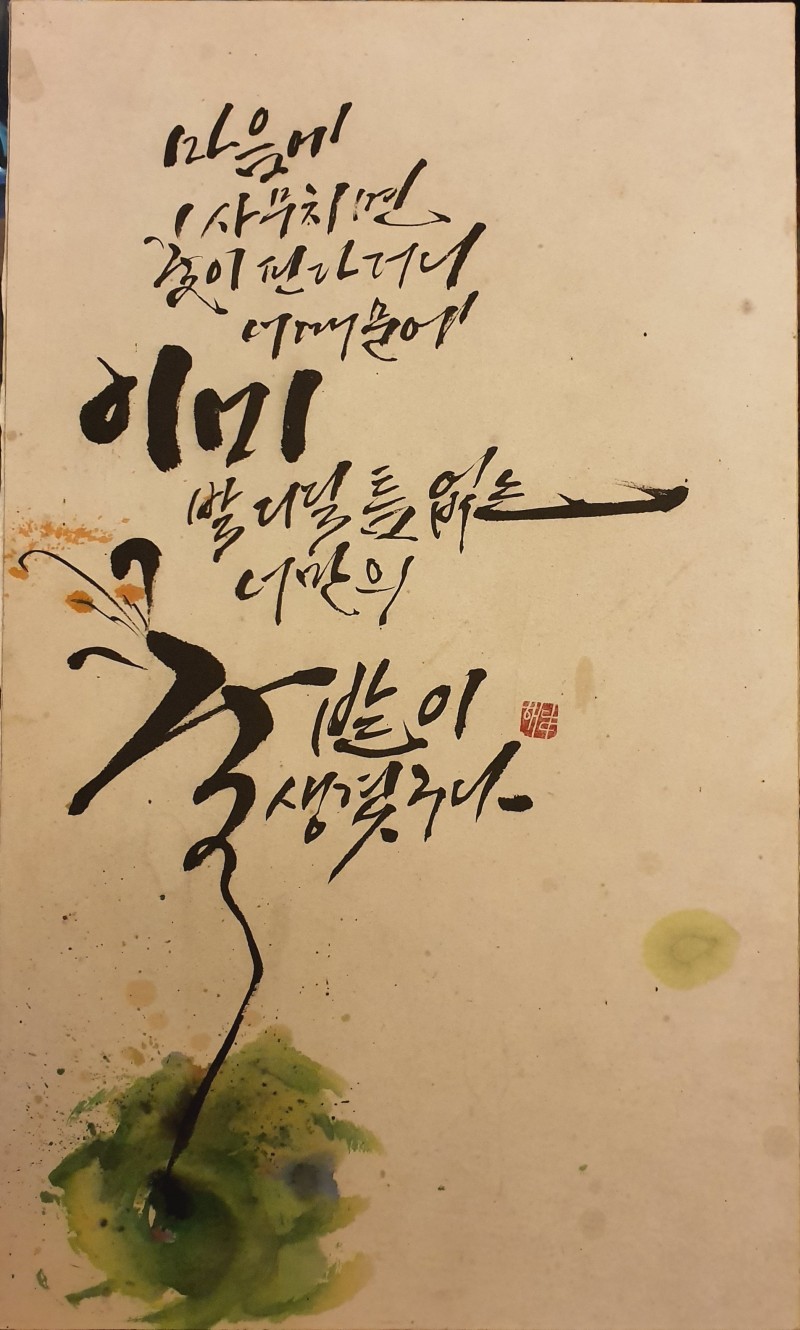 마음에
사무치면
꽃이 핀다더니
너때문에
이미
발 디딜 틈 없는
너만의
꽃밭이
생겼구나